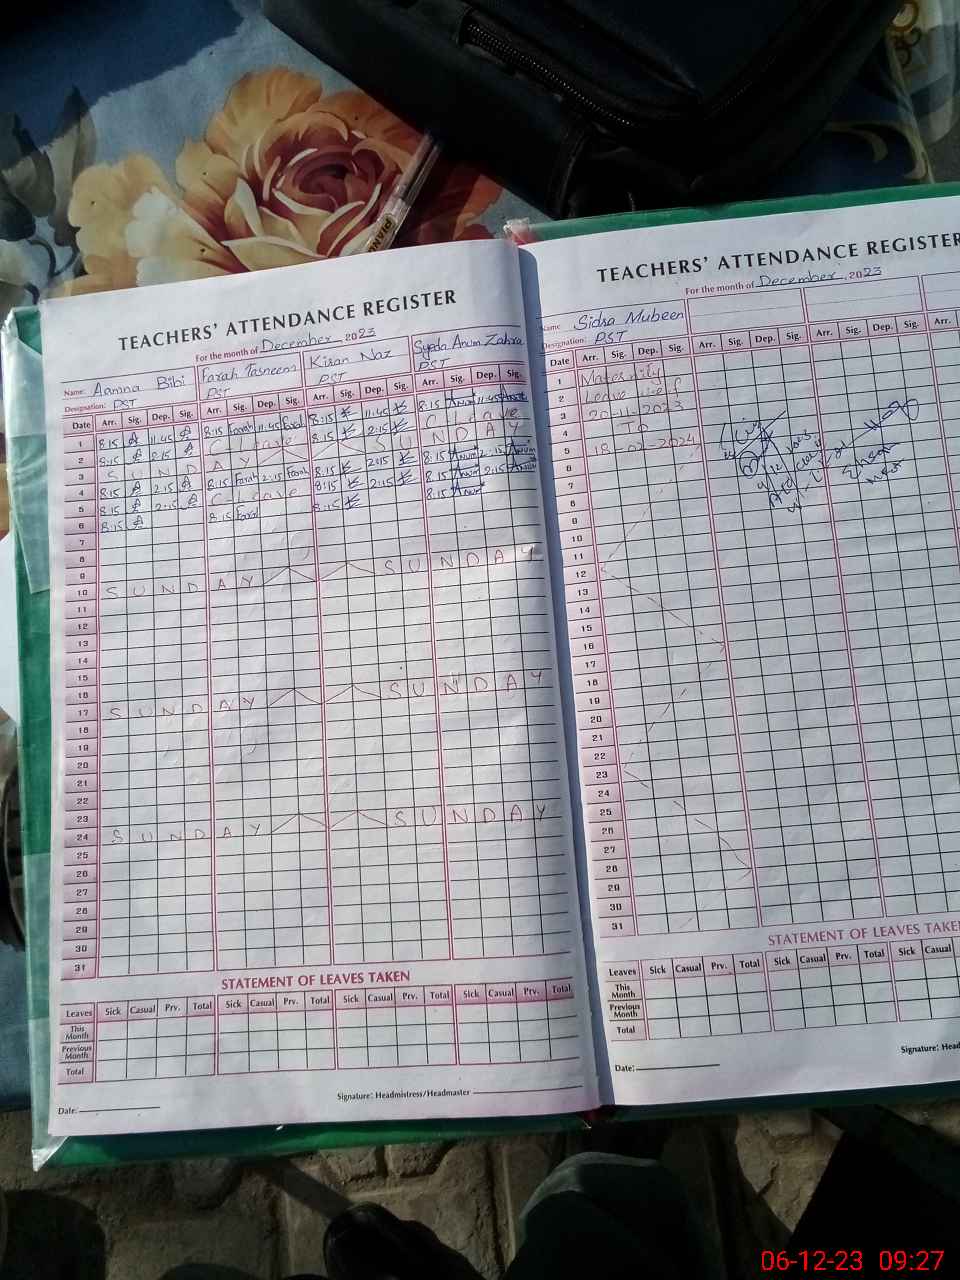 PIANO
TEACHERS' ATTENDANCE REGISTER
For the month of December, 2023
Name: Aamna Bibi Farah Tasneem Kiran Naz Syeda Anum Zahra
Designation: PST PST PST PST
Date Arr. Sig. Dep. Sig. Arr. Sig. Dep. Sig. Arr. Sig. Dep. Sig. Arr. Sig. Dep. Sig.
1 8:15 11:45 8:15 Farah 11:45 Farah 8:15 11:45 8:15 Anum 11:45 Anum
2 8:15 2:15 C-Leave 8:15 2:15 C-Leave
3 SUNDAY SUNDAY
4 8:15 2:15 8:15 Farah 2:15 Farah 8:15 2:15 8:15 Anum 2:15 Anum
5 8:15 2:15 C-Leave 8:15 2:15 8:15 Anum 2:15 Anum
6 8:15 8:15 Farah 8:15 8:15 Anum
7
8
9
10 SUNDAY SUNDAY
11
12
13
14
15
16
17 SUNDAY SUNDAY
18
19
20
21
22
23
24 SUNDAY SUNDAY
25
26
27
28
29
30
31
STATEMENT OF LEAVES TAKEN
Leaves Sick Casual Prv. Total Sick Casual Prv. Total Sick Casual Prv. Total Sick Casual Prv. Total
This Month
Previous Month
Total
Signature: Headmistress/Headmaster
Date:
TEACHERS' ATTENDANCE REGISTER
For the month of December, 2023
Name Sidra Mubeen
Designation: PST
Date Arr. Sig. Dep. Sig. Arr. Sig. Dep. Sig. Arr. Sig. Dep. Sig. Arr.
1 Maternity
2 Leave w.e.f
3 20-11-2023
4 To
5 18-02-2024
6
7
8
9
10
11
12
13
14
15
16
17
18
19
20
21
22
23
24
25
26
27
28
29
30
31
STATEMENT OF LEAVES TAKEN
Leaves Sick Casual Prv. Total Sick Casual Prv. Total Sick Casual
This Month
Previous Month
Total
Signature: Head
Date:
06-12-23 09:27